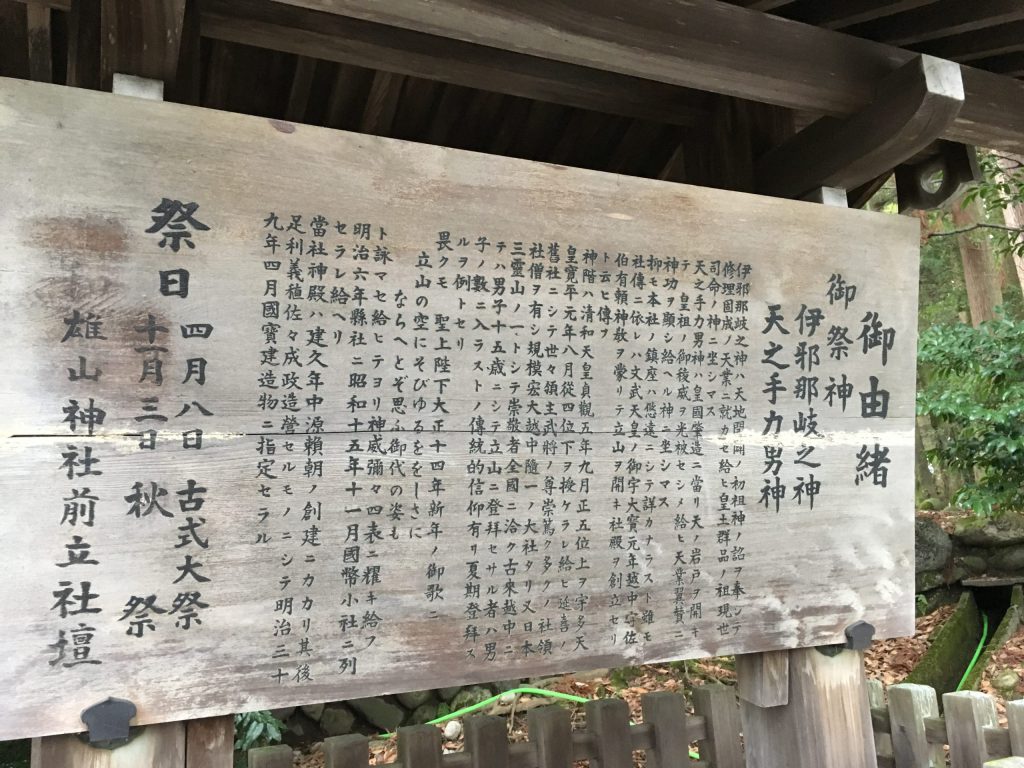 御由緒
御祭神
伊邪那岐之神
天之手力男神
伊邪那岐之神ハ天地開闢ノ初祖神ノ詔ヲ奉シテ
修理固成ノ天業ニ就カセ給ヒ皇土群品ノ祖現世
司命ノ神ニ坐シマス
天之手力男神ハ皇國肇造ニ當リ天ノ岩戸ヲ開キ
テ 皇祖ノ御稜威ヲ光被セシメ給ヒ天業翼賛ニ
神功ヲ顯シ給ヘル神ニ坐シマス
抑モ本社ノ鎮座ハ悠遠ニシテ詳カナラスト雖モ
社傳ニ依レハ文武天皇ノ御宇大寶元年越中守佐
伯有頼神教ヲ蒙リテ立山ヲ開キ社殿ヲ創立セリ
ト云ヒ傳フ
神階ハ清和天皇貞觀五年九月正五位上ヲ宇多天
皇寛平元年八月從四位下ヲ授ケラレ給ヒ延喜ノ
舊社ニシテ世々領主武將ノ尊崇篤ク多クノ社領
社僧ヲ有シ規模宏大越中隨一ノ大社タリ又日本
三靈山ノ一トシテ崇敬者全國ニ洽ク古來越中ニ
テハ男子十五歳ニシテ立山ニ登拜セサル者ハ男
子ノ數ニ入ラストノ傳統的信仰有リ夏期登拜ス
ルヲ例トセリ
畏クモ 聖上陛下大正十四年新年ノ御歌ニ
立山の空にそびゆるををしさに
ならへとぞ思ふ御代の姿も
ト詠マセ給ヒテヨリ神威彌々四表ニ耀キ給フ
明治六年縣社ニ昭和十五年十一月國幣小社ニ列
セラレ給ヘリ
當社神殿ハ建久年中源賴朝ノ創建ニカカリ其後
足利義稙佐々成政造營セルモノニシテ明治三十
九年四月國寶建造物ニ指定セラル
祭日 四月八日 古式大祭
十一月三日 秋祭
雄山神社前立社壇